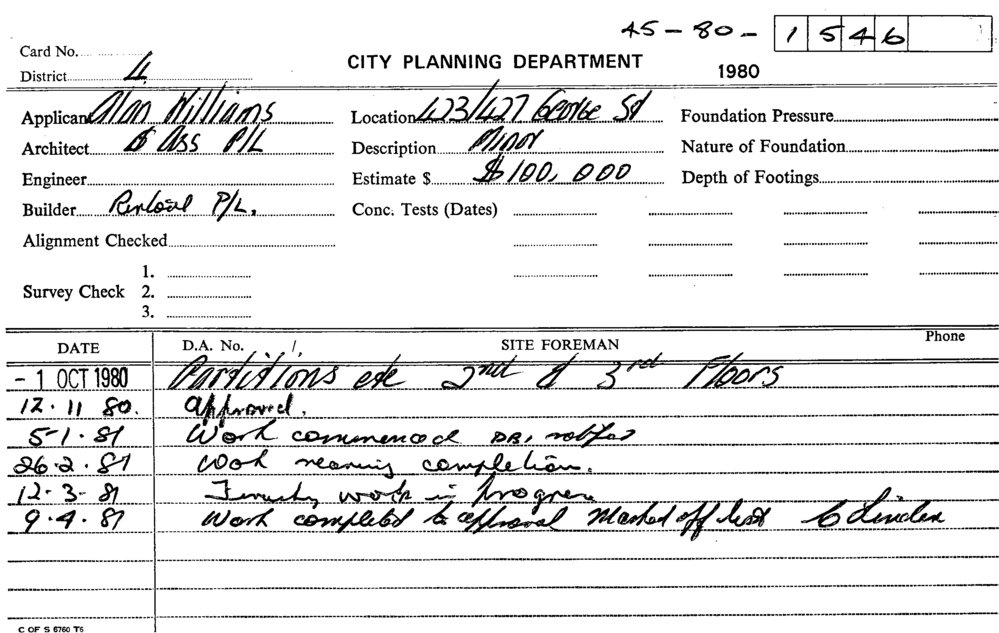 45-80- 1546
Card No.
District 4
CITY PLANNING DEPARTMENT
1980
Applicant Alan Williams
Location 423/427 George St
Foundation Pressure
Architect & Ass P/L
Description Minor
Nature of Foundation
Engineer
Estimate $ $100,000
Depth of Footings
Builder P/L.
Conc. Tests (Dates)
Alignment Checked
Survey Check
1.
2.
3.
DATE
D.A. No. /,
SITE FOREMAN
Phone
- 1 OCT 1980 Partitions etc 2nd & 3rd Floors
12.11 80. Approved.
5-1.81 Work commenced
26.2.81 Work nearing completion.
12-3-81 work in progress
9.4.81 Work completed to approval Marked off list
C OF S 6760 T6